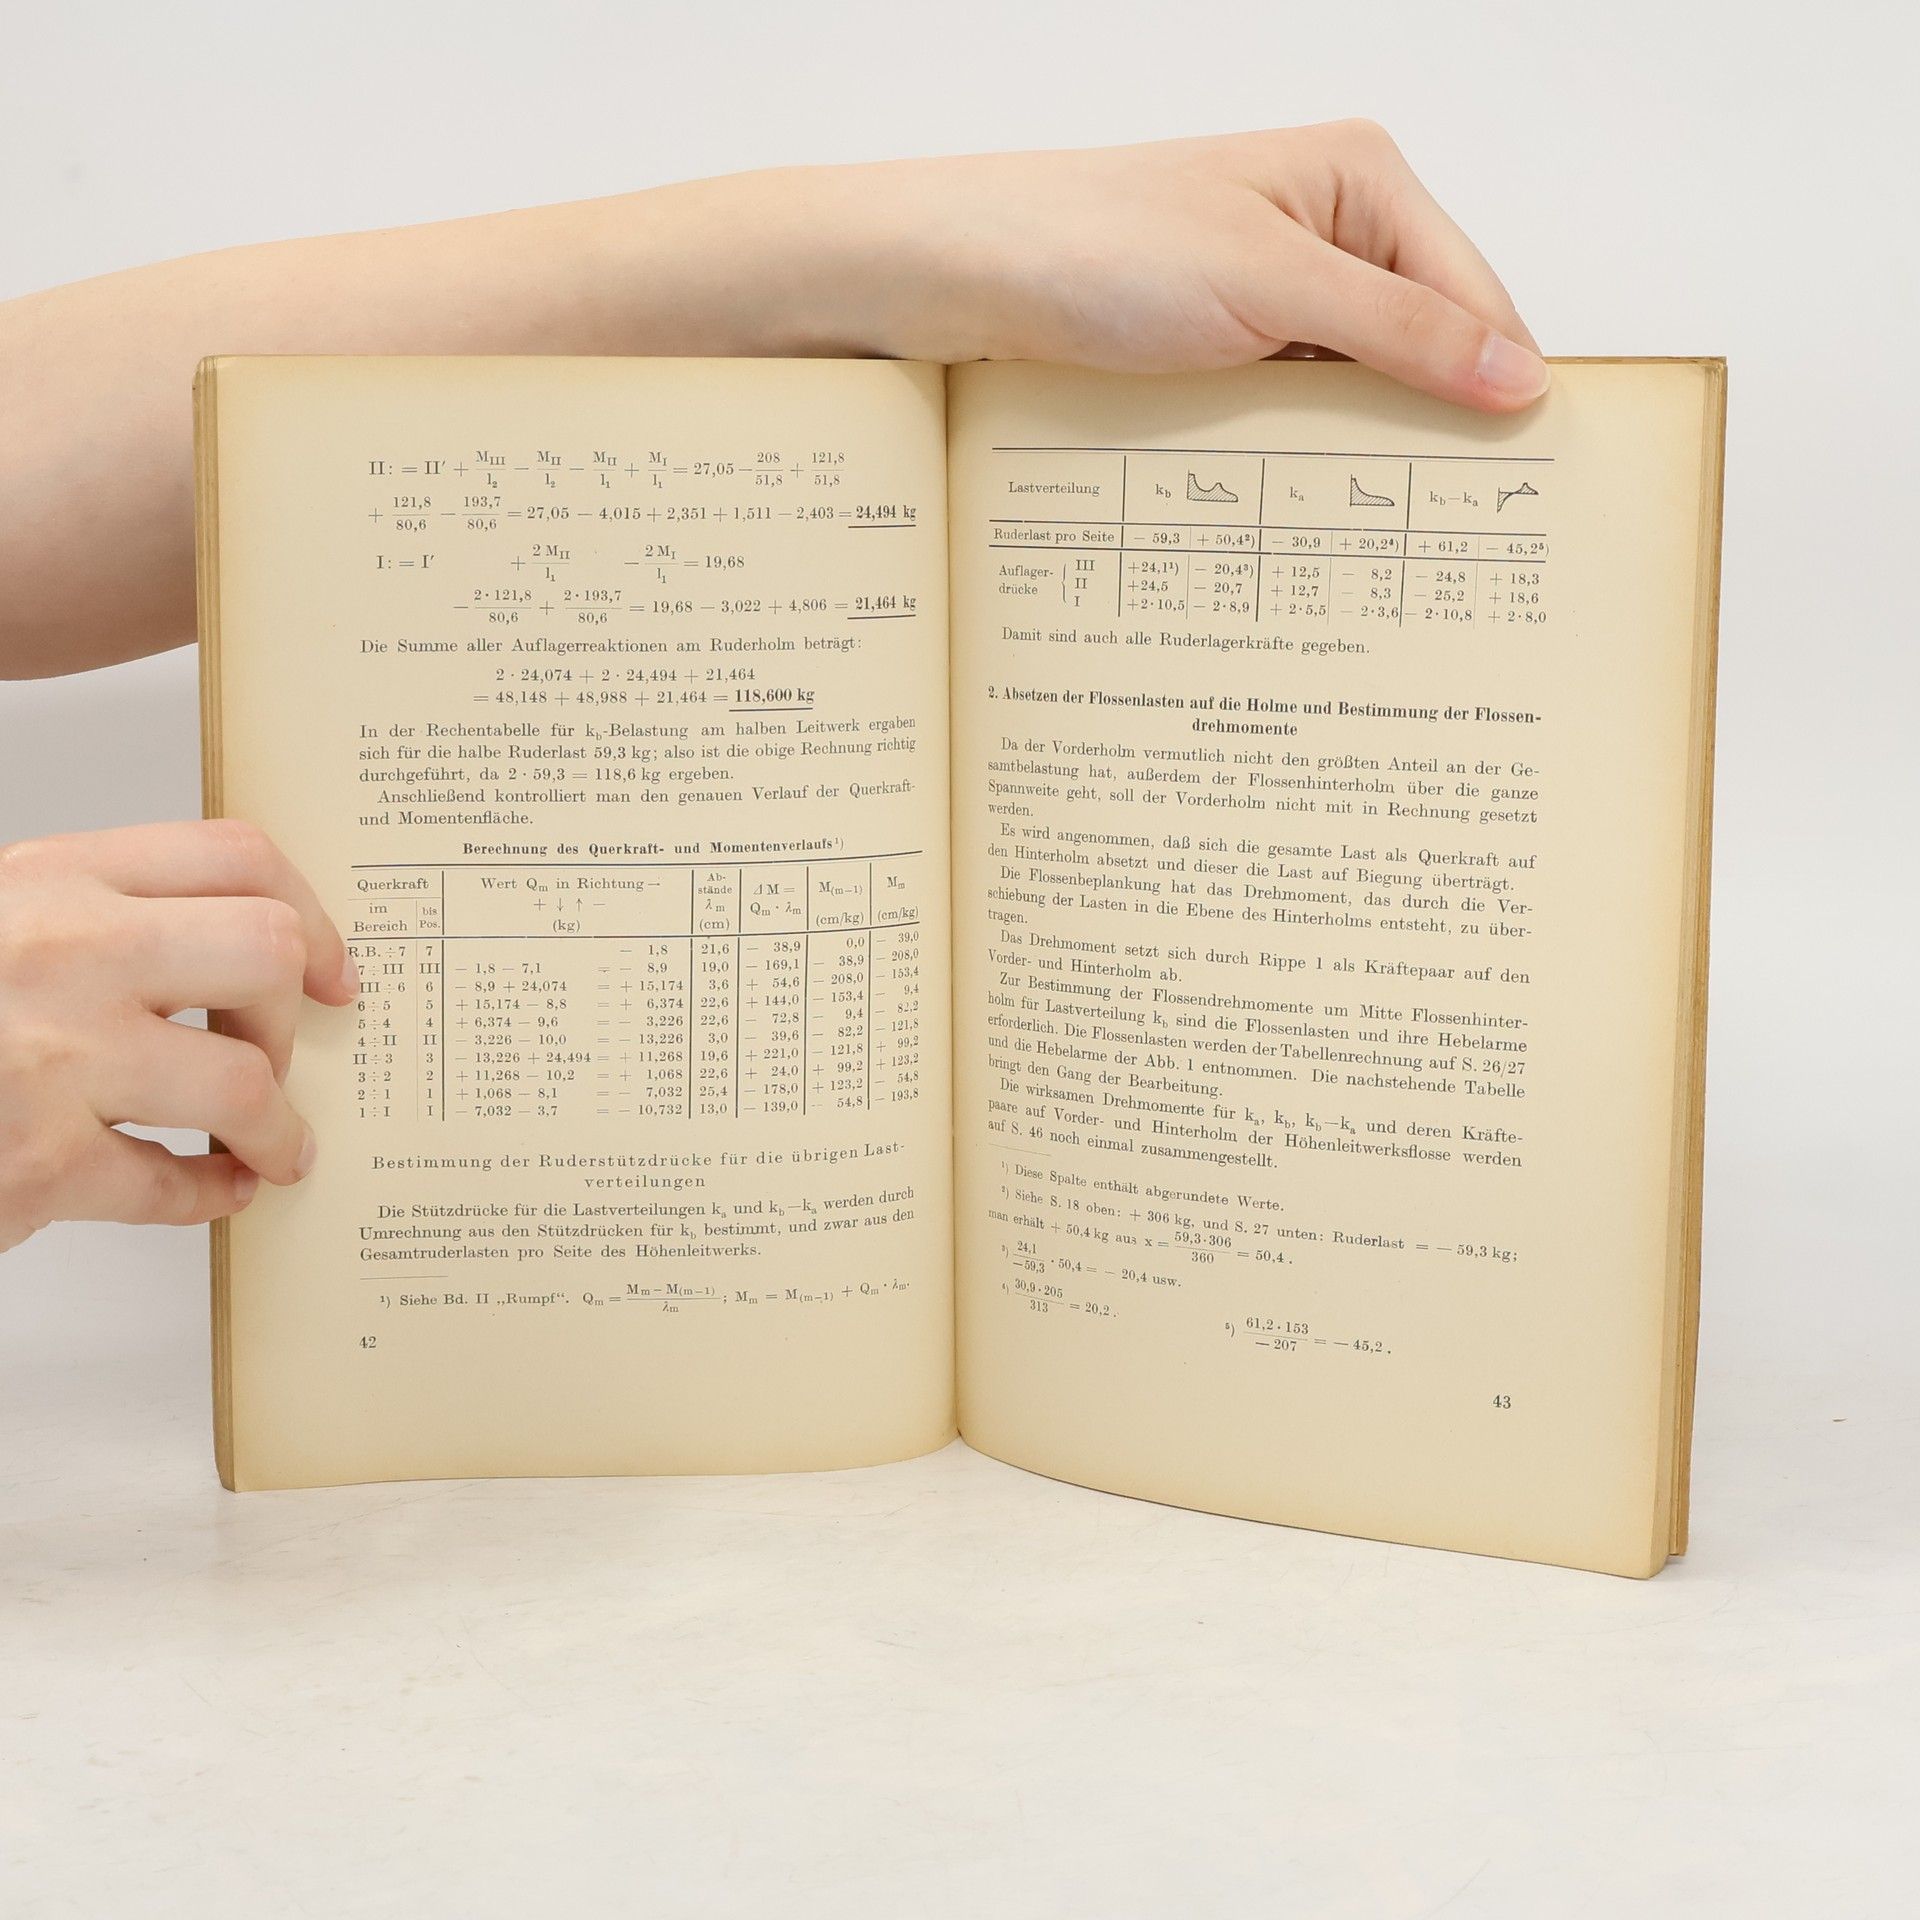 II: = II′ + M_III/l₂ − M_II/l₂ − M_II/l₁ + M_I/l₁ = 27,05 − 208/51,8 + 121,8/51,8
+ 121,8/80,6 − 193,7/80,6 = 27,05 − 4,015 + 2,351 + 1,511 − 2,403 = 24,494 kg
I: = I′ + 2 M_II/l₁ − 2 M_I/l₁ = 19,68
− 2 · 121,8/80,6 + 2 · 193,7/80,6 = 19,68 − 3,022 + 4,806 = 21,464 kg
Die Summe aller Auflagerreaktionen am Ruderholm beträgt:
2 · 24,074 + 2 · 24,494 + 21,464
= 48,148 + 48,988 + 21,464 = 118,600 kg
In der Rechentabelle für k_b-Belastung am halben Leitwerk ergaben
sich für die halbe Ruderlast 59,3 kg; also ist die obige Rechnung richtig
durchgeführt, da 2 · 59,3 = 118,6 kg ergeben.
Anschließend kontrolliert man den genauen Verlauf der Querkraft-
und Momentenfläche.
Berechnung des Querkraft- und Momentenverlaufs¹)
Querkraft Wert Q_m in Richtung → Ab-stände λ_m (cm) Δ M = Q_m · λ_m M_(m−1) (cm/kg) M_m (cm/kg)
im Bereich bis Pos. + ↓ ↑ − (kg)
R.B. ÷ 7 7 − 1,8 21,6 − 38,9 0,0 − 39,0
7 ÷ III III − 1,8 − 7,1 = − 8,9 19,0 − 169,1 − 38,9 − 208,0
III ÷ 6 6 − 8,9 + 24,074 = + 15,174 3,6 + 54,6 − 208,0 − 153,4
6 ÷ 5 5 + 15,174 − 8,8 = + 6,374 22,6 + 144,0 − 153,4 − 9,4
5 ÷ 4 4 + 6,374 − 9,6 = − 3,226 22,6 − 72,8 − 9,4 − 82,2
4 ÷ II II − 3,226 − 10,0 = − 13,226 3,0 − 39,6 − 82,2 − 121,8
II ÷ 3 3 − 13,226 + 24,494 = + 11,268 19,6 + 221,0 − 121,8 + 99,2
3 ÷ 2 2 + 11,268 − 10,2 = + 1,068 22,6 + 24,0 + 99,2 + 123,2
2 ÷ 1 1 + 1,068 − 8,1 = − 7,032 25,4 − 178,0 + 123,2 − 54,8
1 ÷ I I − 7,032 − 3,7 = − 10,732 13,0 − 139,0 − 54,8 − 193,8
Bestimmung der Ruderstützdrücke für die übrigen Last-
verteilungen
Die Stützdrücke für die Lastverteilungen k_a und k_b−k_a werden durch
Umrechnung aus den Stützdrücken für k_b bestimmt, und zwar aus den
Gesamtruderlasten pro Seite des Höhenleitwerks.
¹) Siehe Bd. II „Rumpf“. Q_m = (M_m − M_(m−1))/λ_m; M_m = M_(m−1) + Q_m · λ_m.
42
Lastverteilung k_b k_a k_b−k_a
Ruderlast pro Seite − 59,3 + 50,4²) − 30,9 + 20,2⁴) + 61,2 − 45,2⁵)
Auflager-drücke III +24,1¹) − 20,4³) + 12,5 − 8,2 − 24,8 + 18,3
II +24,5 − 20,7 + 12,7 − 8,3 − 25,2 + 18,6
I +2·10,5 − 2·8,9 + 2·5,5 − 2·3,6 − 2·10,8 + 2·8,0
Damit sind auch alle Ruderlagerkräfte gegeben.
2. Absetzen der Flossenlasten auf die Holme und Bestimmung der Flossen-
drehmomente
Da der Vorderholm vermutlich nicht den größten Anteil an der Ge-
samtbelastung hat, außerdem der Flossenhinterholm über die ganze
Spannweite geht, soll der Vorderholm nicht mit in Rechnung gesetzt
werden.
Es wird angenommen, daß sich die gesamte Last als Querkraft auf
den Hinterholm absetzt und dieser die Last auf Biegung überträgt.
Die Flossenbeplankung hat das Drehmoment, das durch die Ver-
schiebung der Lasten in die Ebene des Hinterholms entsteht, zu über-
tragen.
Das Drehmoment setzt sich durch Rippe 1 als Kräftepaar auf den
Vorder- und Hinterholm ab.
Zur Bestimmung der Flossendrehmomente um Mitte Flossenhinter-
holm für Lastverteilung k_b sind die Flossenlasten und ihre Hebelarme
erforderlich. Die Flossenlasten werden der Tabellenrechnung auf S. 26/27
und die Hebelarme der Abb. 1 entnommen. Die nachstehende Tabelle
bringt den Gang der Bearbeitung.
Die wirksamen Drehmomente für k_a, k_b, k_b−k_a und deren Kräfte-
paare auf Vorder- und Hinterholm der Höhenleitwerksflosse werden
auf S. 46 noch einmal zusammengestellt.
¹) Diese Spalte enthält abgerundete Werte.
²) Siehe S. 18 oben: + 306 kg, und S. 27 unten: Ruderlast = − 59,3 kg;
man erhält + 50,4 kg aus x = 59,3·306/360 = 50,4.
³) 24,1/−59,3 · 50,4 = − 20,4 usw.
⁴) 30,9·205/313 = 20,2.
⁵) 61,2·153/−207 = − 45,2.
43